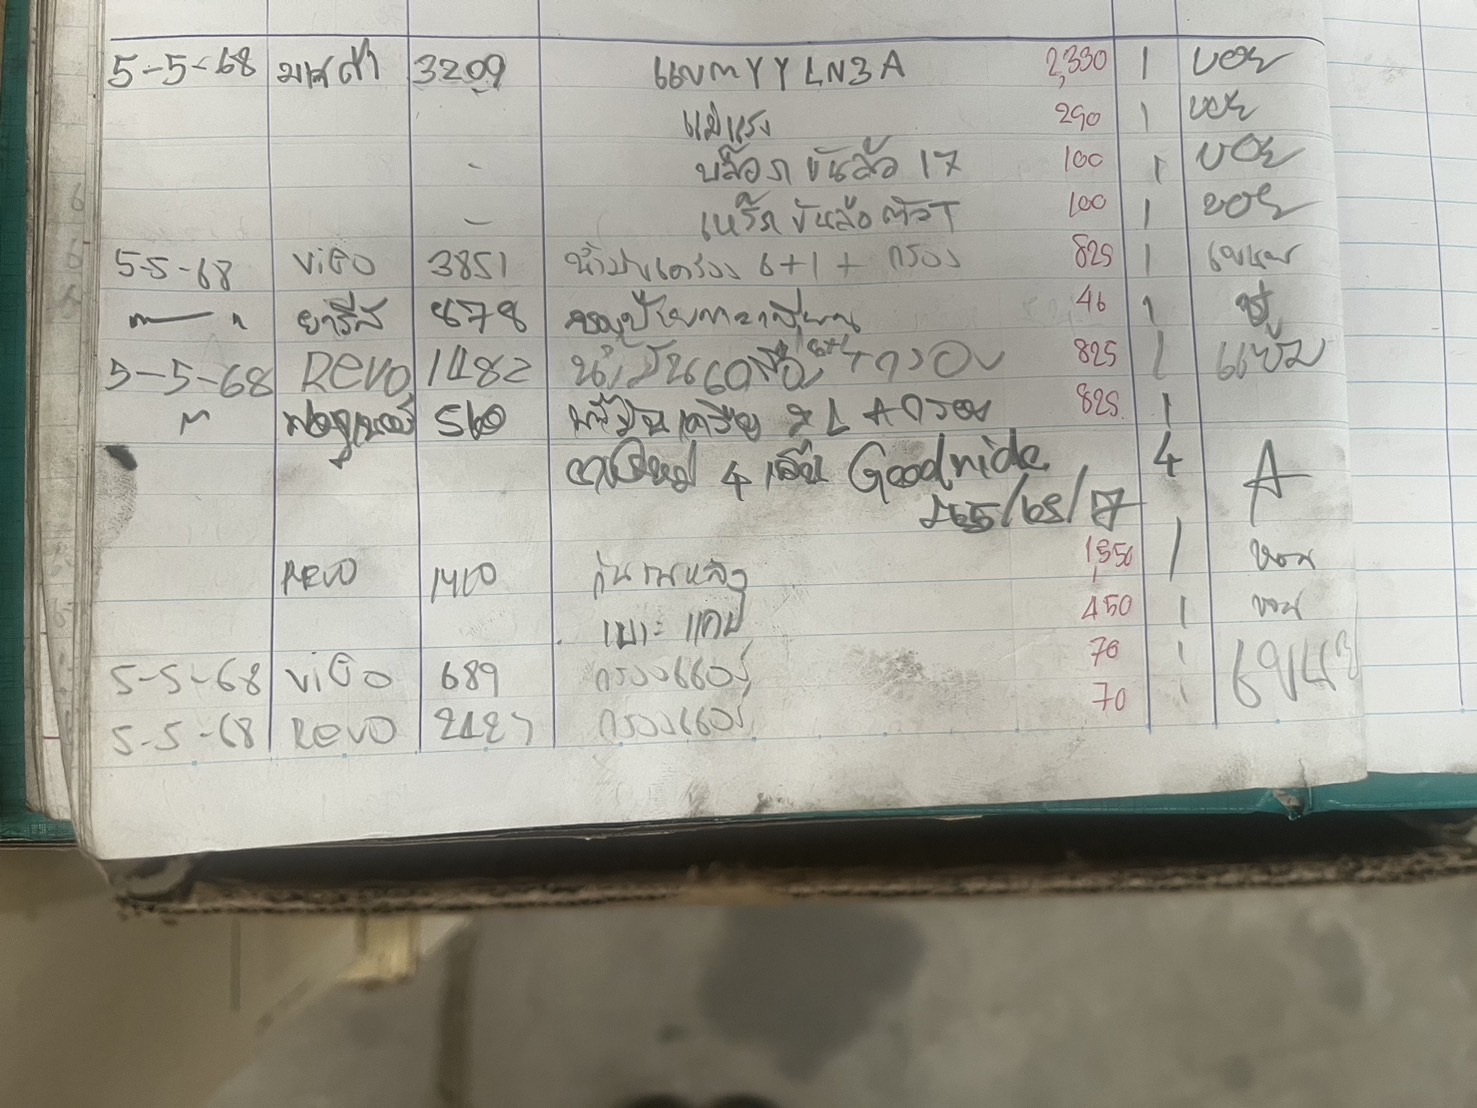 5-5-68 มาสด้า 3209 แบต YY LN3A 2,330 1 บอย
แม่แรง 290 1 บอย
- บล็อก ขันล้อ 17 100 1 บอย
- เหล็ก ขันล้อ ตัวT 100 1 บอย
5-5-68 ViGo 3851 น้ำมันเครื่อง 6+1 + กรอง 825 1
ยารีส 878 46 1
5-5-68 Revo 1482 น้ำมันเครื่อง 6+1 + กรอง 825 1 แข้ม
560 น้ำมันเครื่อง 7L + กรอง 825 1
4 เส้น Goodride 4 A
265/65/17
Revo 1410 กันชนหลัง 1,550 1
เบาะ แคป 450 1
5-5-68 ViGo 689 กรองแอร์ 70 1
5-5-68 Revo กรองแอร์ 70 1